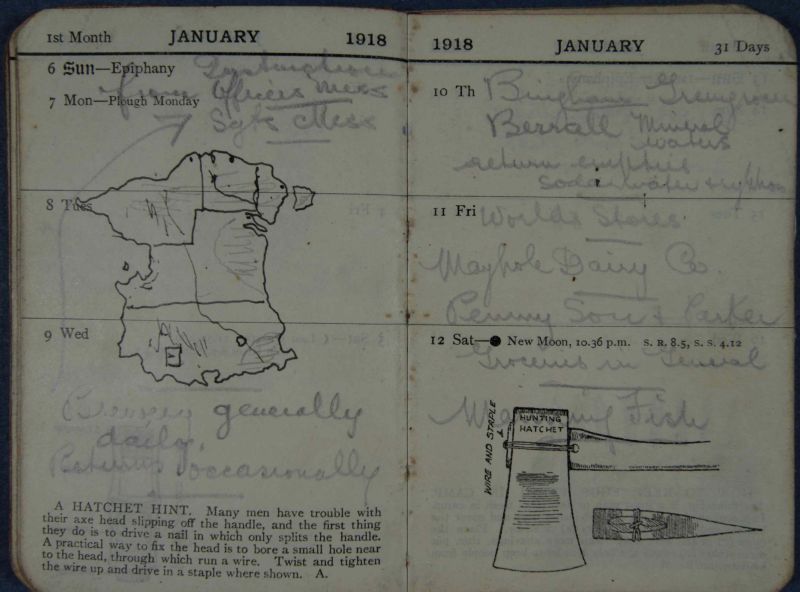 1st Month JANUARY 1918
6 Sun—Epiphany
from Officers Mess
7 Mon—Plough Monday
Sgts Mess
8 Tues
9 Wed
generally
daily.
Returns occasionally
A HATCHET HINT. Many men have trouble with
their axe head slipping off the handle, and the first thing
they do is to drive a nail in which only splits the handle.
A practical way to fix the head is to bore a small hole near
to the head, through which run a wire. Twist and tighten
the wire up and drive in a staple where shown. A.
1918 JANUARY 31 Days
10 Th Bingham
Berrall Mineral
waters
return empties
soda water
11 Fri Worlds Stores
Maypole Dairy Co.
12 Sat—● New Moon, 10.36 p.m. S. R. 8.5, S. S. 4.12
Groceries in General
Fish
WIRE AND STAPLE
HUNTING
HATCHET